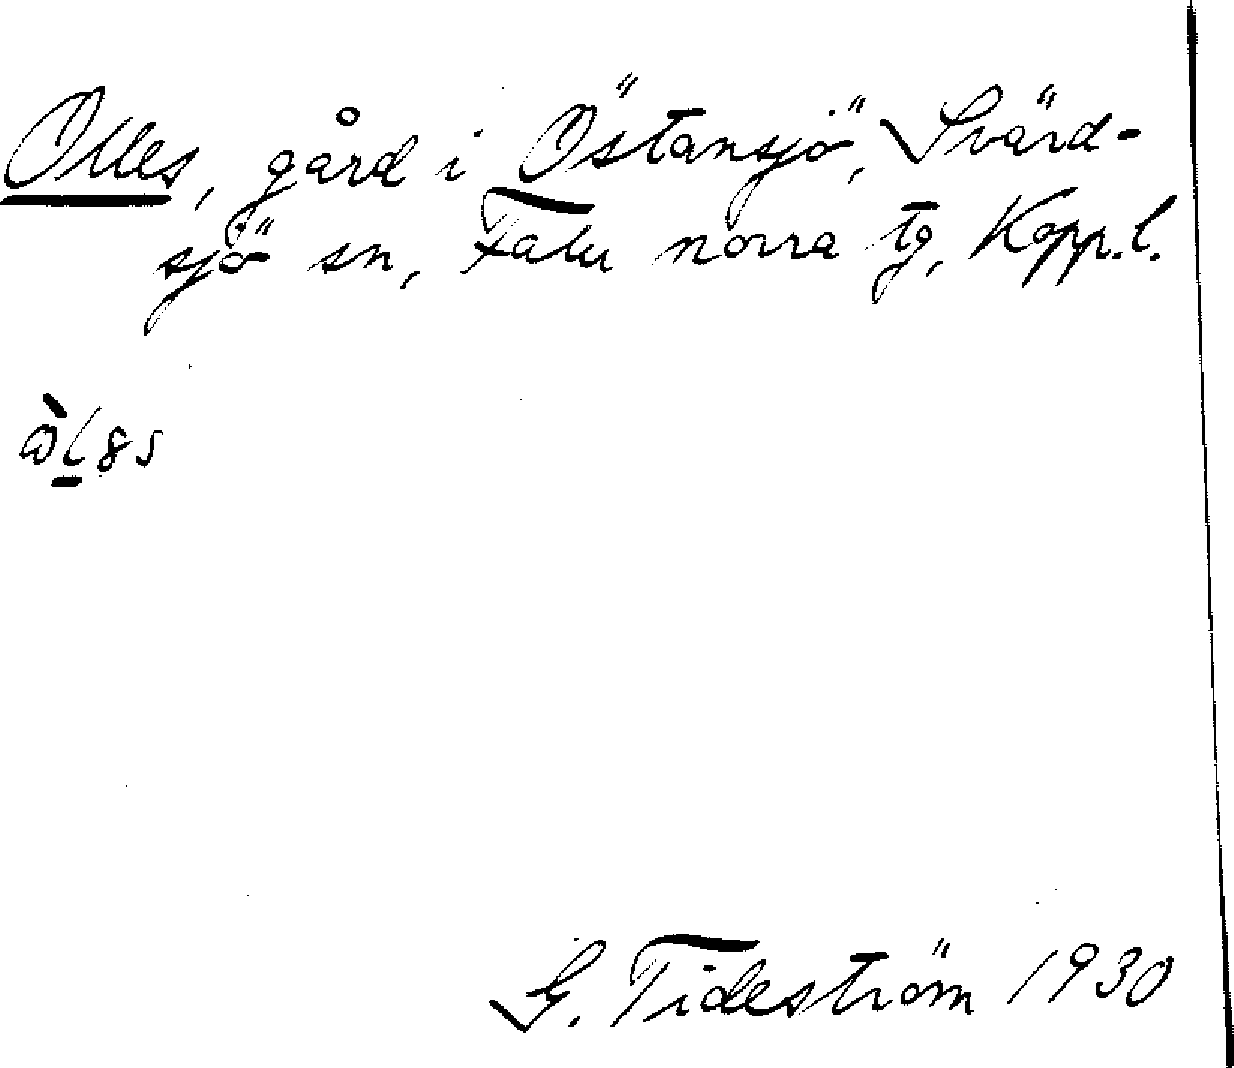 Olles, gård i Östansjö, Svärd-
sjö sn, Falu norra tg, Kopp.l.
G. Tideström 1930